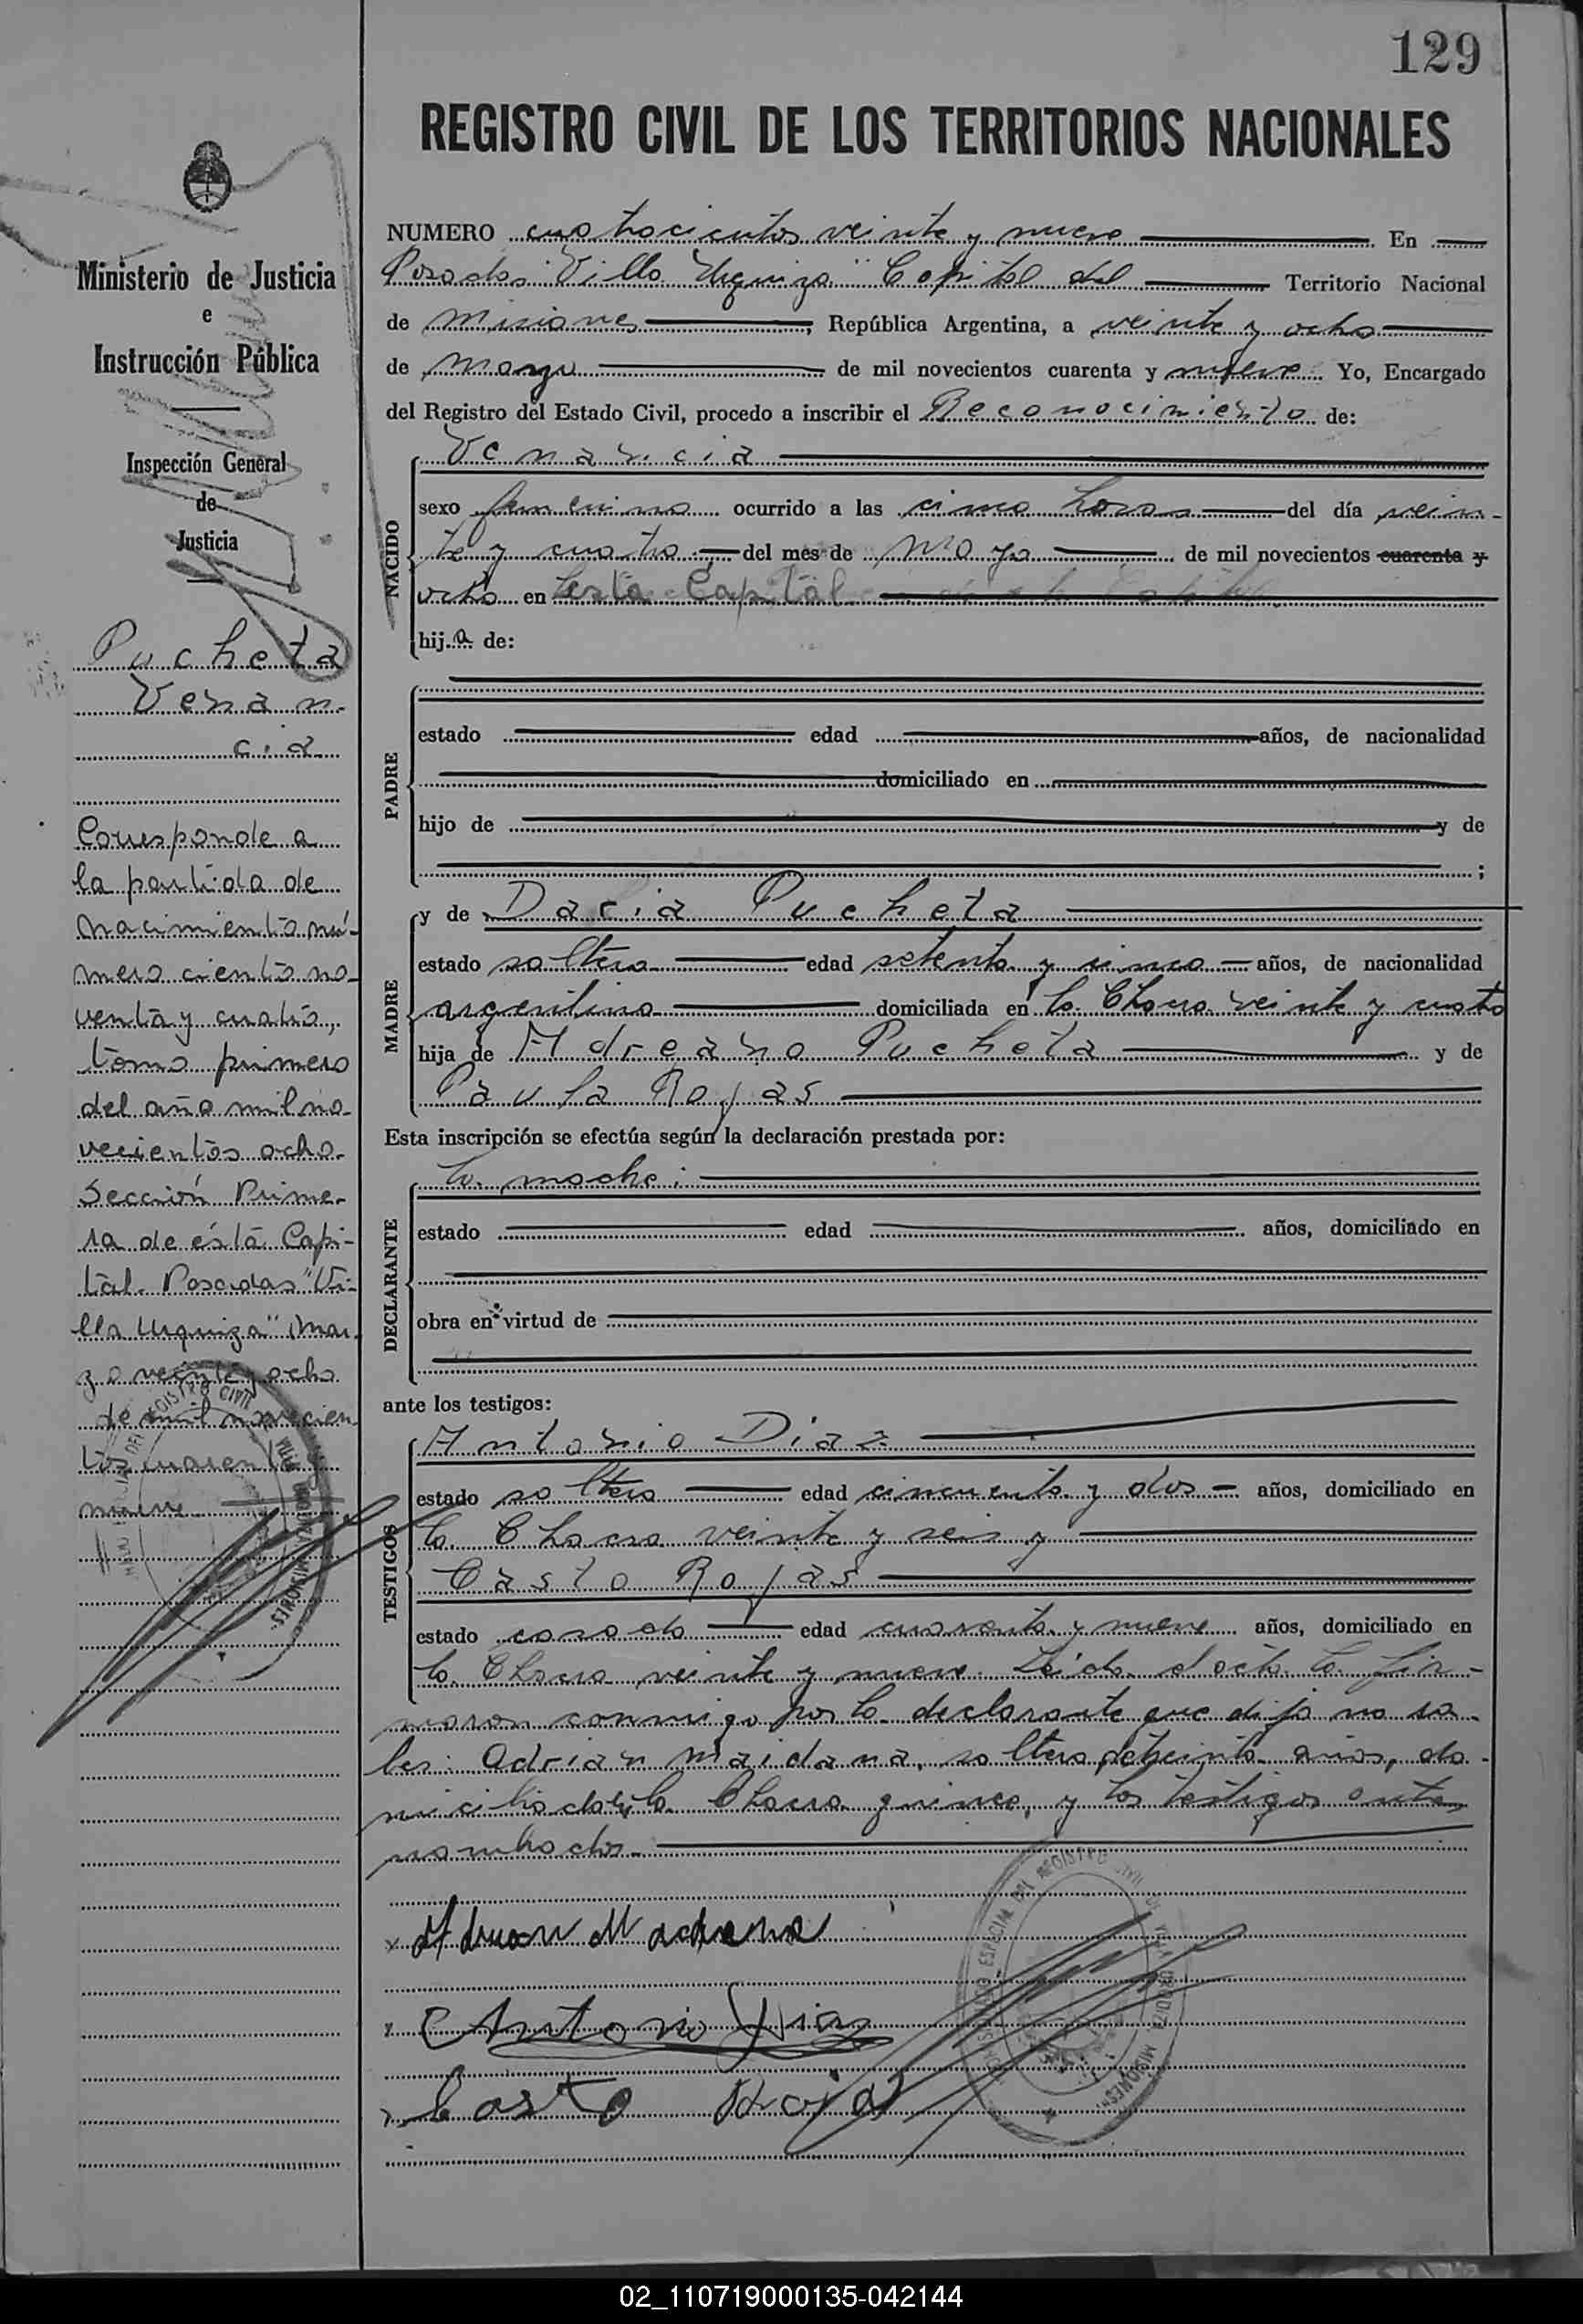 129
REGISTRO CIVIL DE LOS TERRITORIOS NACIONALES
Ministerio de Justicia
e
Instrucción Pública
Inspección General
de
Justicia
Pucheta
Venan-
cia
Corresponde a
la partida de
nacimiento nú-
mero ciento no-
venta y cuatro,
tomo primero
del año mil no-
vecientos ocho.
Sección Prime-
ra de ésta Capi-
tal. Posadas "Vi-
lla Urquiza" Mar-
zo veinte y ocho
de mil novecien-
tos cuarenta y
nueve
NUMERO cuatrocientos veinte y nueve En
Posadas "Villa Urquiza" Capital del Territorio Nacional
de Misiones, República Argentina, a veinte y ocho
de marzo de mil novecientos cuarenta y nueve Yo, Encargado
del Registro del Estado Civil, procedo a inscribir el Reconocimiento de:
NACIDO
Venancia
sexo femenino ocurrido a las cinco horas del día vein-
te y cuatro del mes de mayo de mil novecientos cuarenta y
ocho en esta Capital
hija de:
PADRE
estado edad años, de nacionalidad
domiciliado en
hijo de y de
;
MADRE
y de Daria Pucheta
estado soltera edad setenta y cinco años, de nacionalidad
argentina domiciliada en la Chacra veinte y cuatro
hija de Adreano Pucheta y de
Paula Rojas
Esta inscripción se efectúa según la declaración prestada por:
DECLARANTE
la madre:
estado edad años, domiciliado en
obra en virtud de
ante los testigos:
TESTIGOS
Antonio Diaz
estado soltero edad cincuenta y dos años, domiciliado en
la Chacra veinte y seis y
Casto Rojas
estado casado edad cuarenta y nueve años, domiciliado en
la Chacra veinte y nueve. Leída el acta la fir-
maron conmigo por la declarante que dijo no sa-
ber: Adrian Maidana, soltero, de treinta años, do-
miciliado en la Chacra quince, y los testigos ante
nombrados.
Antonio Diaz
Casto Rojas
02_110719000135-042144